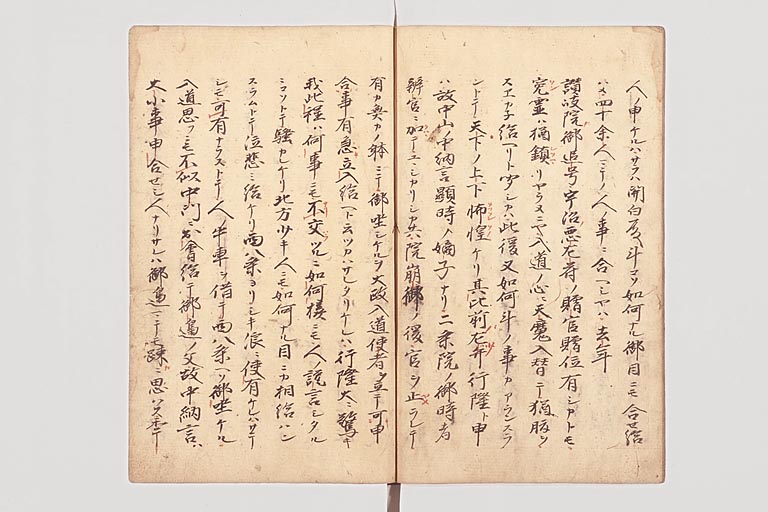 人ノ申ケルハサラハ関白殿斗コソ如何ナル御目ニモ合セ給
ハメ四十余人マテノ人ノ事ニ合ヘシヤハ去年
讃岐院御追号宇治悪左府ノ贈官贈位有シカトモ
冤霊ハ猶鎮リヤラヌニヤ入道ノ心ニ天魔入替テ猶腹ヲ
スエカネ給ヘリト聞シハ此後又如何斗ノ事カアランスラ
ントテ天下ノ上下怖惶ケリ其比前左少弁行隆ト申
ハ故中山ノ中納言顕時ノ嫡子ナリ二条院ノ御時者
弁官ニ加テユヽシカリシカ共院崩御ノ後官ヲ止ラレテ
有カ無カノ躰ニテ御坐シケルヲ大政入道使者ヲ立テ可申
合事有急立入給ヘト云ツカハサレタリケレハ行隆大ニ驚キ
我此程ハ何事ニモ不交ツルニ如何様ニモ人ノ讒言シタル
ニコソトテ騒カレケリ北方少キ人ニモ如何ナル目ニカ相給ハン
スラムトテ泣悲ミ給ケリ西八条ヨリシキ浪ニ使有ケレハサテ
シモ可有ナラストテ人ノ牛車ヲ借テ西八条ヘソ御坐ケル
入道思ツニモ不似中門ニ出会給テ御辺ノ父故中納言ハ
大小事申合セシ人ナリサレハ御辺トテモ疎ニ思ハス